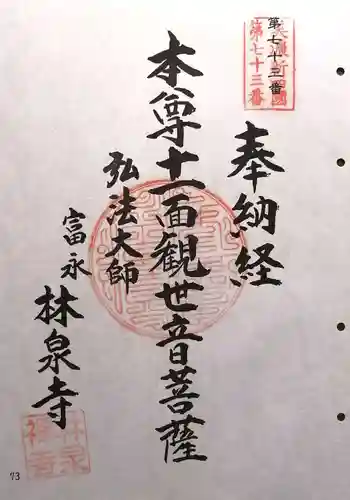 第七十三番
美濃新四國
第七十三番
奉納経
本尊十一面観世音菩薩
弘法大師
富永
林泉寺
73